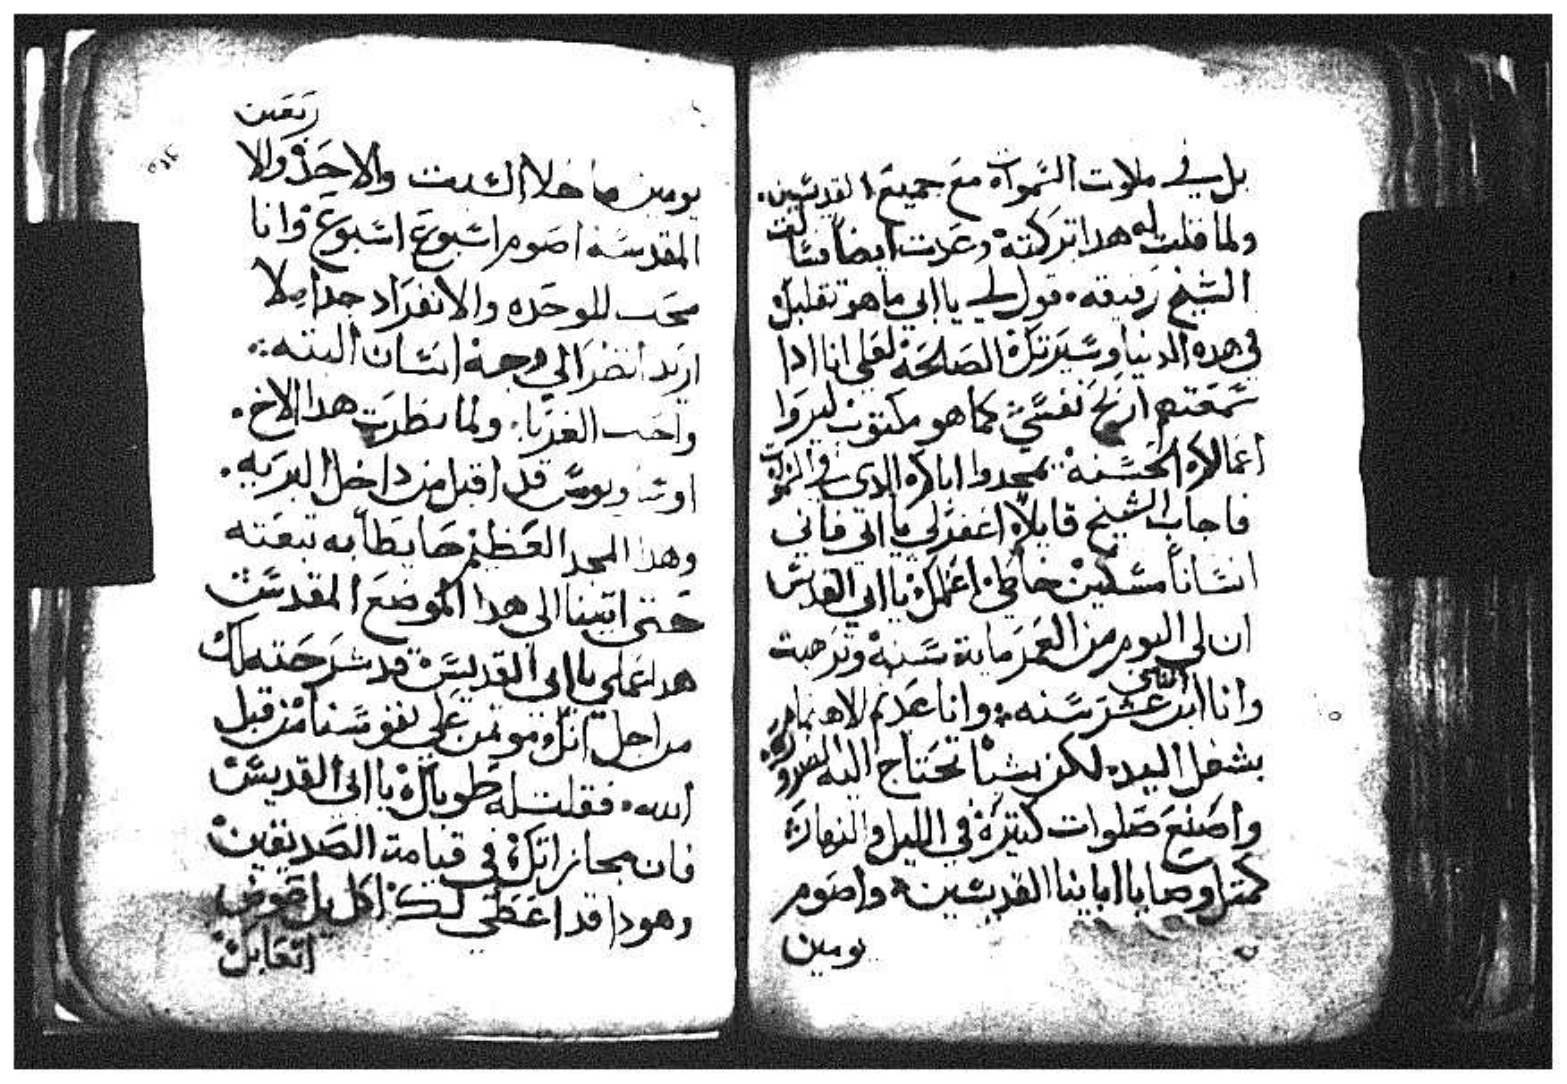 بل في ملكوت السموات مع جميع القديسين.
ولما قلت له هدا تركته وعدت ايضاً فسالت
الشيخ رفيقه. قول لي يا ابي ما هو تقلبك
في هده الدنيا وسيرتك الصلحة لعلي انا ادا
سمعتهم اربح نفسي كما هو مكتوب ليروا
اعمالكم الحسنة يمجدوا اباكم الدى في السموات
فاجاب الشيخ قايلاً اغفر لي يا ابي فاني
انساناً مسكين خاطي اعلمك يا ابي القديس
ان لي اليوم من العمر ماية سنة وترهبت
وانا ابن اثني عشر سنه. وانا عديم الاهتمام
بشغل اليد. لكن بشيا تحتاج اليه الضرورة
واصنع صلوات كتيرة في الليل والنهار
كمتل وصايا ابايينا القديسين. واصوم
يومين
ربعين
يومين ما خلا السبت والاحد والا
المقدسة اصوم اسبوع اسبوع وانا
محب للوحده والانفراد جدا ولا
اريد انظر الي وجه انسان البته.
واحب الغربا. ولما نظرت هدا الاخ.
قد اقبل من داخل البريه.
وهدا المجد العظيم حايطاً به تبعته
حتى اتينا الى هدا الموضع المقدس
هدا عملي يا ابي القديس قد شرحته لك
من اجل انك موتمن علي نفوسنا من قبل
الله. فقلت له طوباك يا ابي القديس
فان مجازاتك في قيامة الصديقين
وهودا قد اعطي لك اكليل عوض
اتعابك